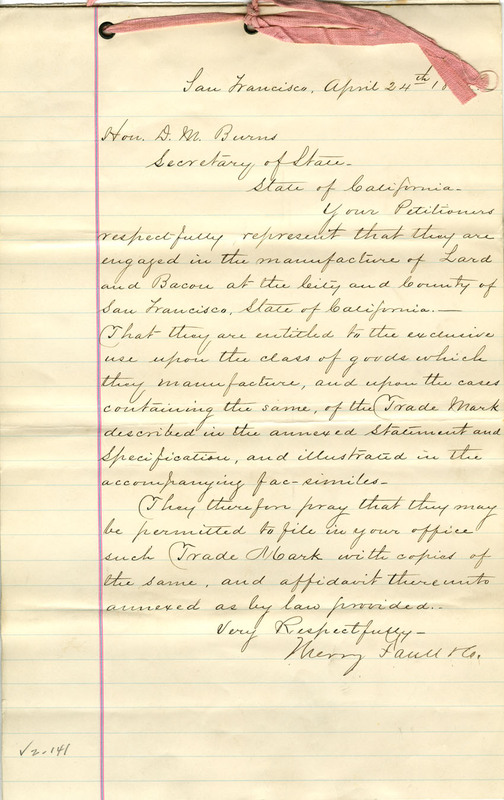 San Francisco, April 24th 18
Hon. D. M. Burns
Secretary of State -
State of California -
Your Petitioners
respectfully represent that they are
engaged in the manufacture of Lard
and Bacon at the City and County of
San Francisco, State of California. —
That they are entitled to the exclusive
use upon the class of goods which
they manufacture, and upon the cases
containing the same, of the Trade Mark
described in the annexed Statement and
Specification, and illustrated in the
accompanying fac-similes -
They therefore pray that they may
be permitted to file in your office
such Trade Mark with copies of
the same, and affidavit thereunto
annexed as by law provided. -
Very Respectfully -
Merry Faull & Co.
V2-141